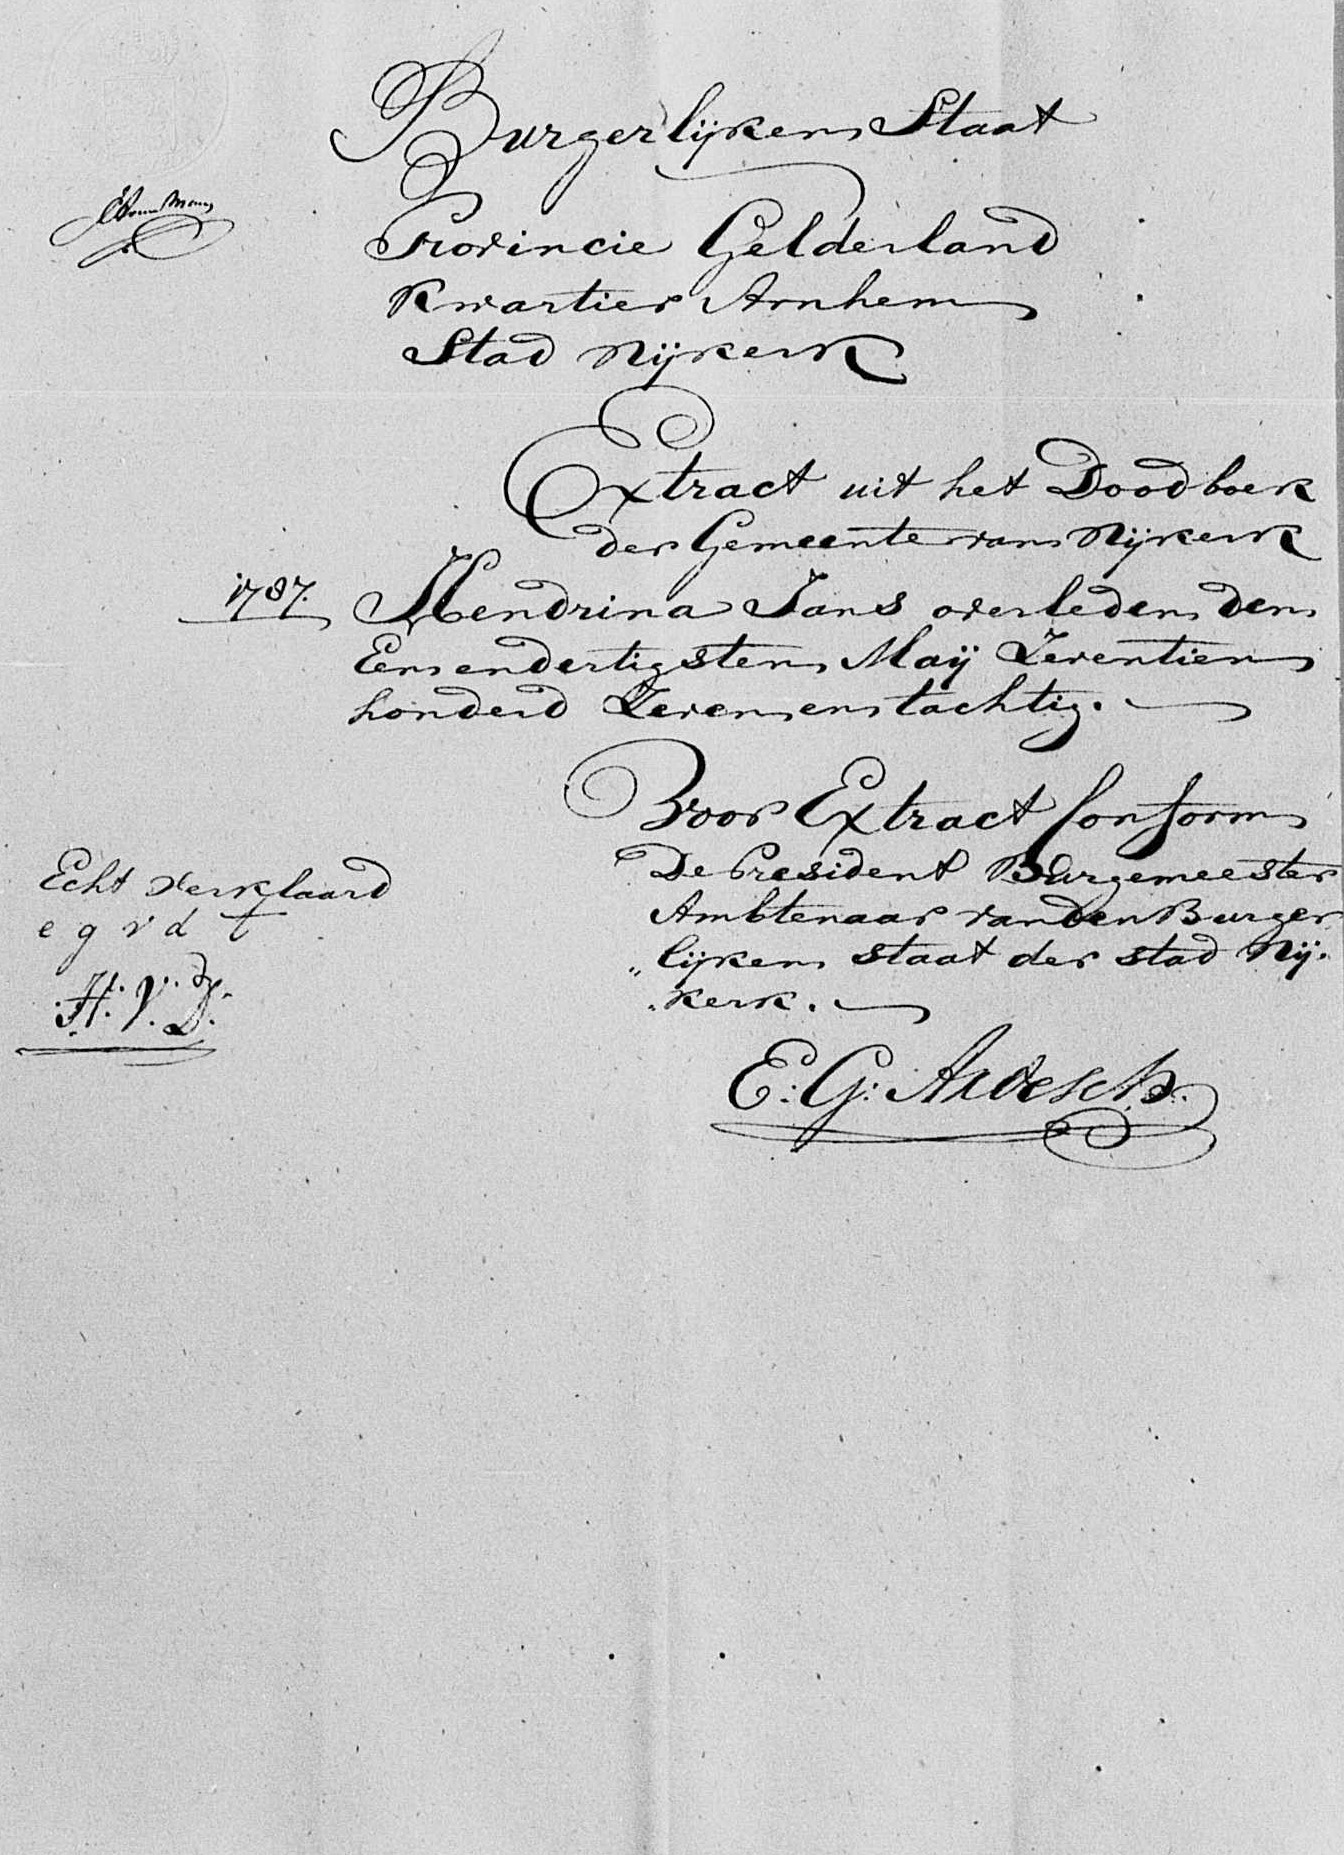 Burgerlijken Staat
Provincie Gelderland
Kwartier Arnhem
Stad Nijkerk
Extract uit het Doodboek
der Gemeente van Nijkerk
1787. Hendrina Jans overleden den
Eenendertigsten Maij Zeventien
honderd Zevenentachtig.
Voor Extract Conform
De President Burgemeester
Ambtenaar van den Burger
„lijken staat der stad Nij.
„kerk.
Echt verklaard
e g v d t
H. V. D.
E: G: Ardesch.